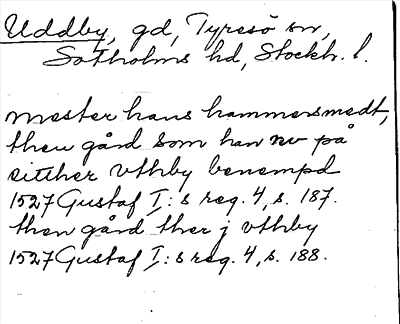 Uddby, gd, Tyresö sn,
Sotholms hd, Stockh. l.
mester hans hammersmedt,
then gård som han nv på
sitther vthby benempd
1527 Gustaf I:s reg. 4, s. 187.
then gård ther j vthby
1527 Gustaf I:s reg. 4, s. 188.